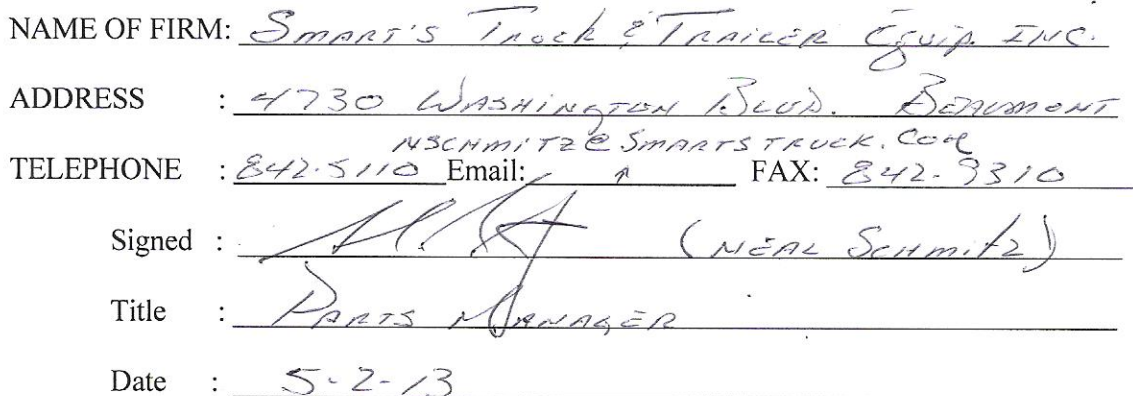 NAME OF FIRM: SMART'S TRUCK & TRAILER EQUIP. INC.
ADDRESS : 4730 WASHINGTON BLVD. BEAUMONT
NSCHMITZ@SMARTSTRUCK.COM
TELEPHONE : 842-5110 Email: ↑ FAX: 842-9310
Signed : (NEAL SCHMITZ)
Title : PARTS MANAGER
Date : 5-2-13